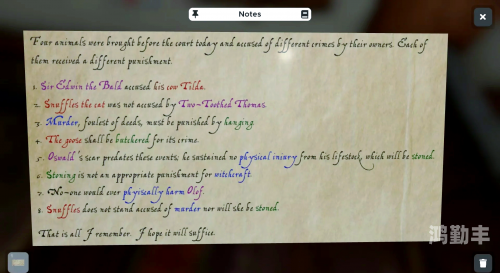 Notes
Four animals were brought before the court today and accused of different crimes by their owners. Each of
them received a different punishment.
1. Sir Edwin the Bald accused his cow Tilda.
2. Snuffles the cat was not accused by Two-Toothed Thomas.
3. Murder, foulest of deeds, must be punished by hanging.
4. The goose shall be butchered for its crime.
5. Oswald's scar predates these events; he sustained no physical injury from his lifestock, which will be stoned.
6. Stoning is not an appropriate punishment for witchcraft.
7. No-one would ever phyiscally harm Olef.
8. Snuffles does not stand accused of murder nor will she be stoned.
That is all I remember. I hope it will suffice.
鸿勤丰